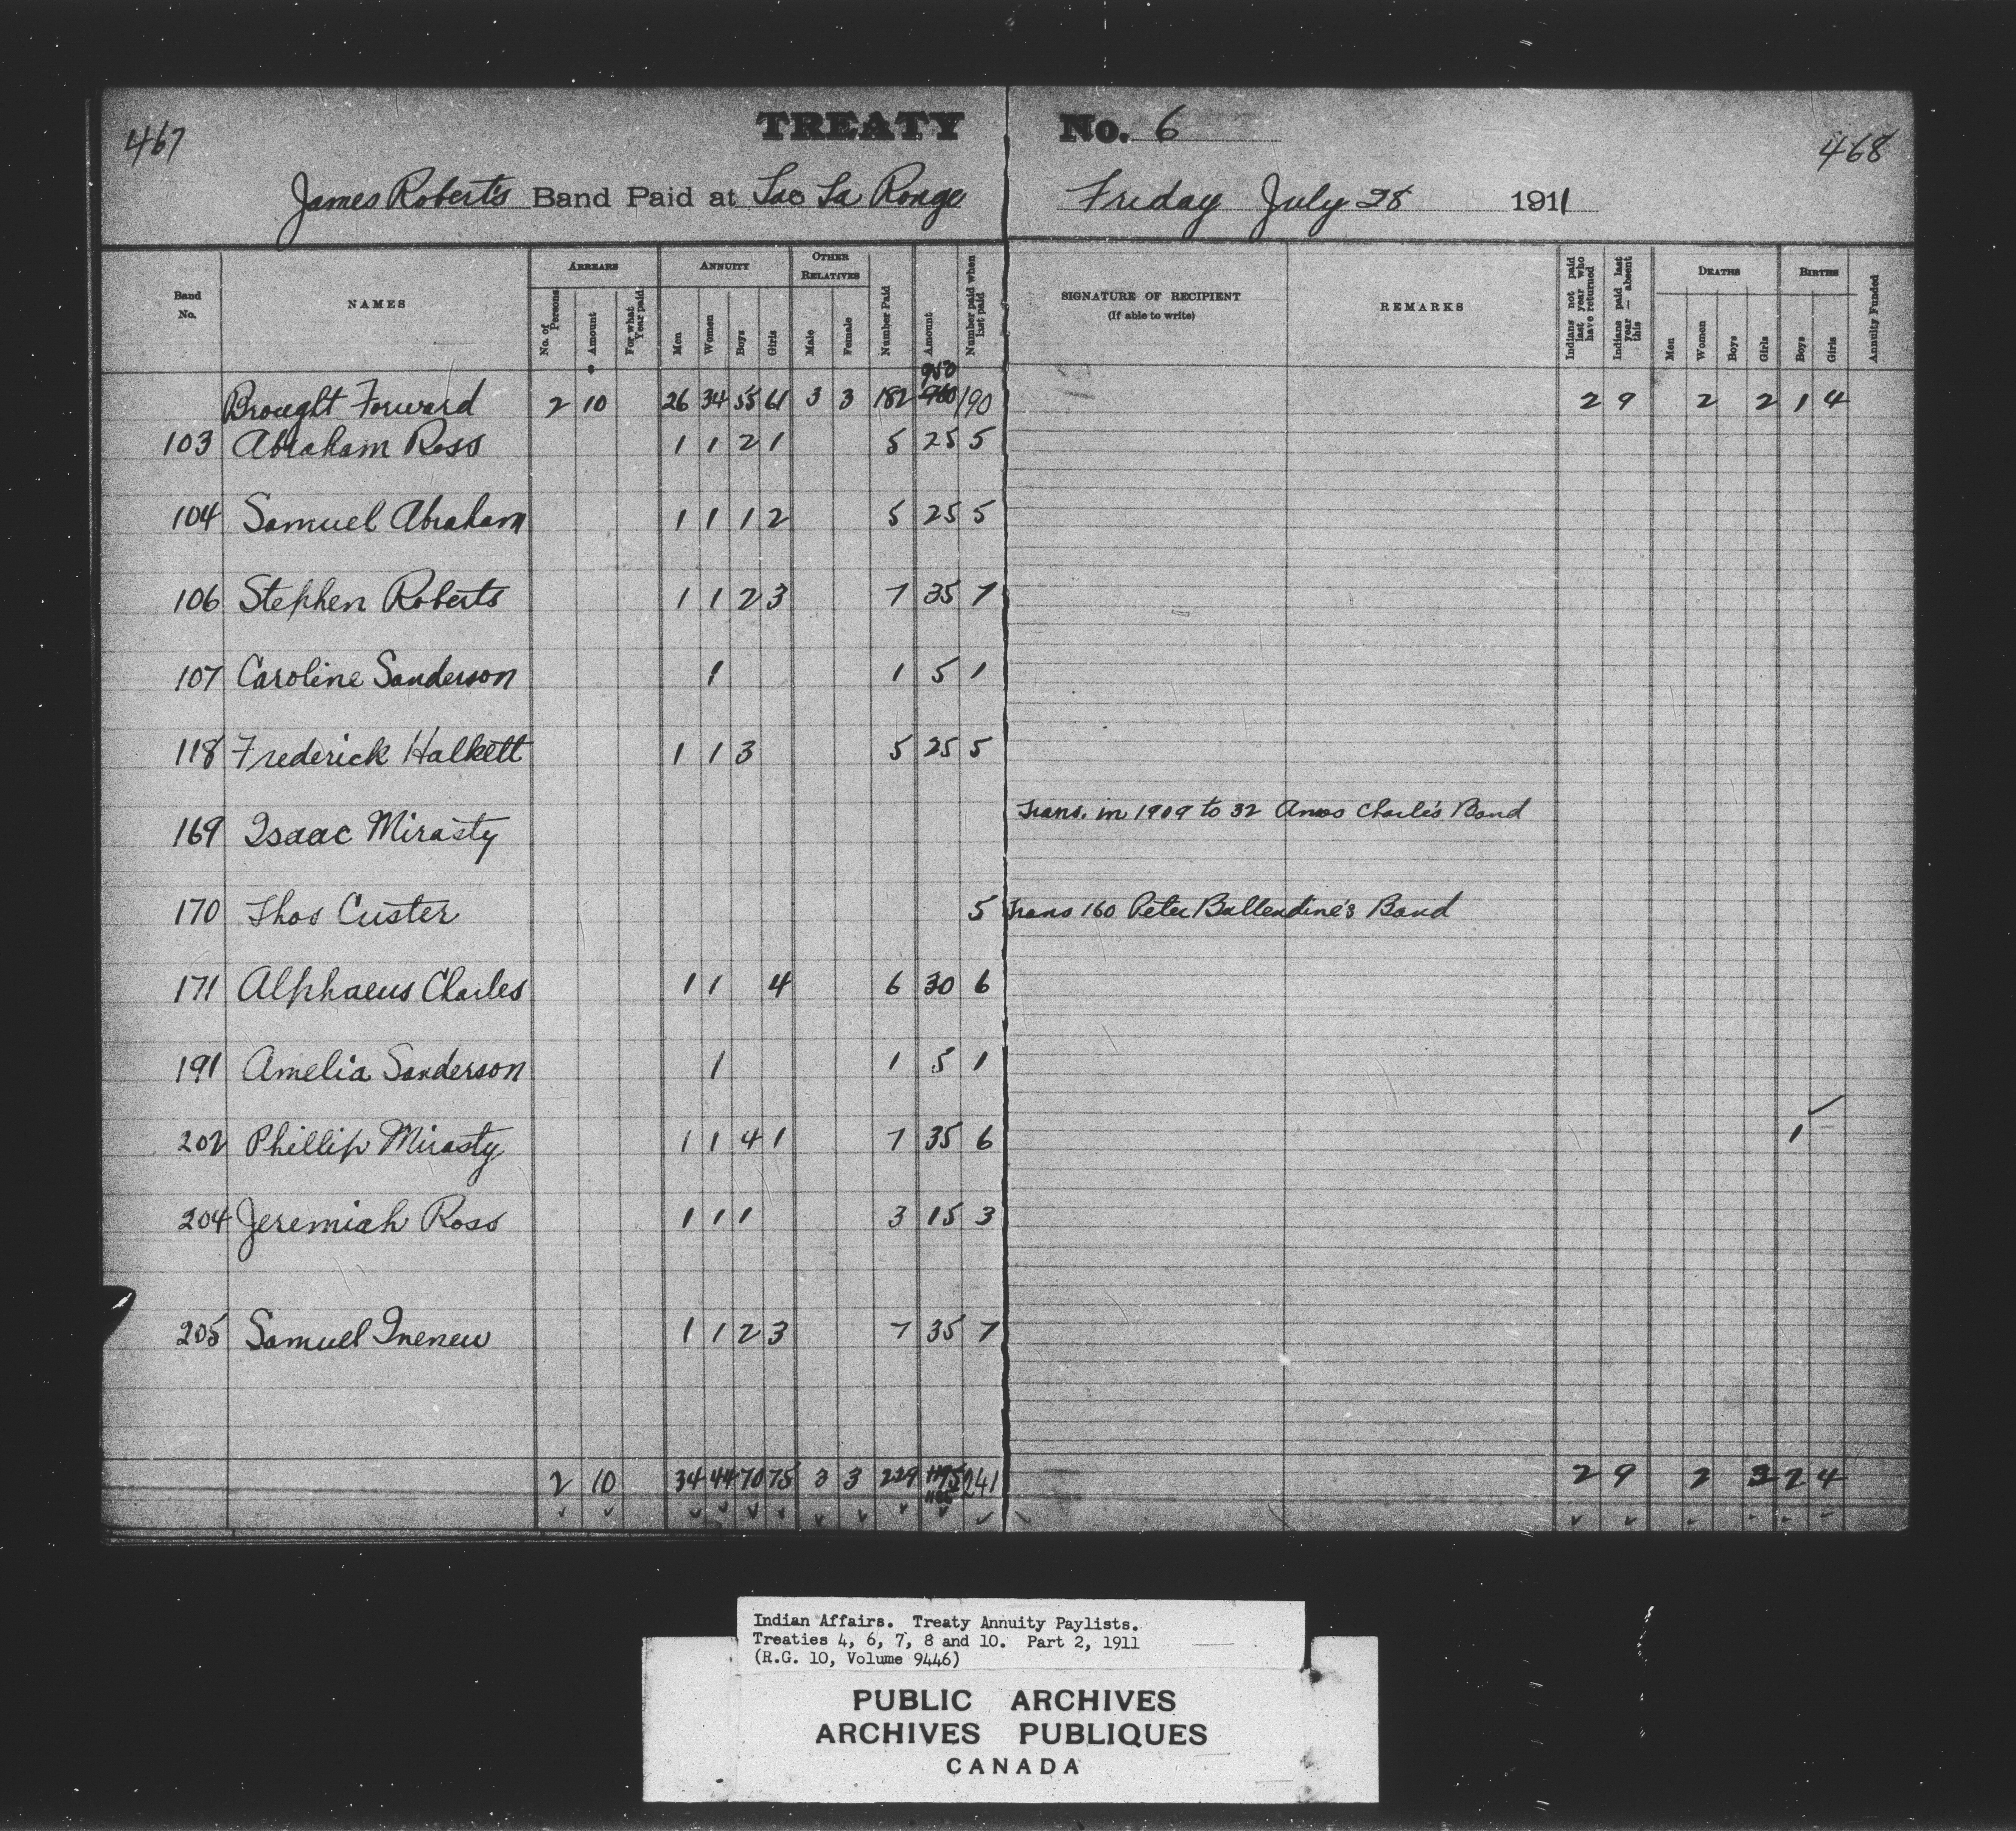 467
TREATY No. 6
468
James Roberts Band Paid at Lac La Ronge Friday July 28 1911
Band No. NAMES ARREARS ANNUITY OTHER RELATIVES Number Paid Amount Number paid when last paid SIGNATURE OF RECIPIENT (If able to write) REMARKS Indians not paid last year who have returned Indians paid last year — absent this DEATHS BIRTHS Annuity Funded
No. of Persons Amount For what Year paid Men Women Boys Girls Male Female Men Women Boys Girls Boys Girls
950
Brought Forward 2 10 26 34 55 61 3 3 182 960 190 2 9 2 2 1 4
103 Abraham Ross 1 1 2 1 5 25 5
104 Samuel Abraham 1 1 1 2 5 25 5
106 Stephen Roberts 1 1 2 3 7 35 7
107 Caroline Sanderson 1 1 5 1
118 Frederick Halkett 1 1 3 5 25 5
169 Isaac Mirasty Trans. in 1909 to 32 Amos Charles Band
170 Thos Custer 5 Trans 160 Peter Ballendine's Band
171 Alphaeus Charles 1 1 4 6 30 6
191 Amelia Sanderson 1 1 5 1
202 Phillip Mirasty 1 1 4 1 7 35 6 1
204 Jeremiah Ross 1 1 1 3 15 3
205 Samuel Inenew 1 1 2 3 7 35 7
2 10 34 44 70 75 3 3 229 1195 241 2 9 2 2 4
Indian Affairs. Treaty Annuity Paylists.
Treaties 4, 6, 7, 8 and 10. Part 2, 1911
(R.G. 10, Volume 9446)
PUBLIC ARCHIVES
ARCHIVES PUBLIQUES
CANADA